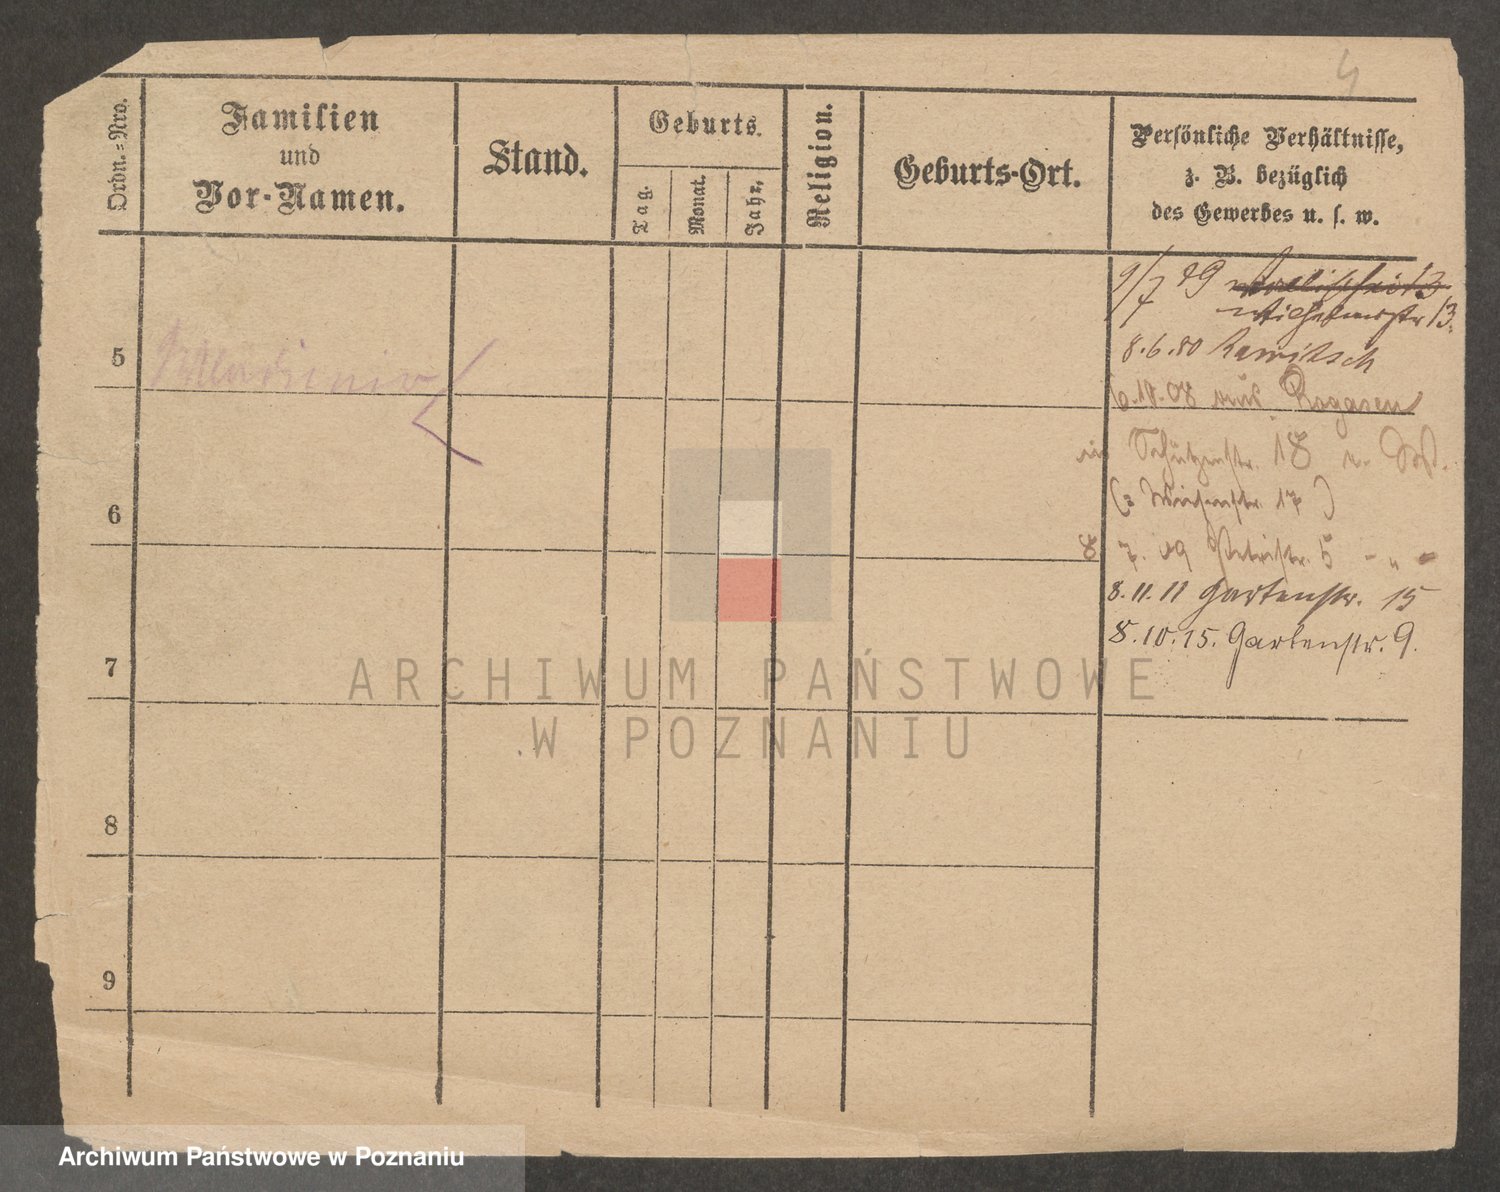 4
Ordn.=Nro.
Familien
und
Vor-Namen.
Stand.
Geburts.
Tag.
Monat.
Jahr.
Religion.
Geburts-Ort.
Persönliche Verhältnisse,
z. B. bezüglich
des Gewerbes u. s. w.
9/7 79
13.
8.6.80 Rawitsch
5
6.10.08 aus Rogasen
in Schützenstr. 18 v.
6
17 )
8 7. 09 Petristr. 5 - " -
8.11.11 Gartenstr. 15
8.10.15. Gartenstr. 9.
7
ARCHIWUM PAŃSTWOWE
W POZNANIU
8
9
Archiwum Państwowe w Poznaniu